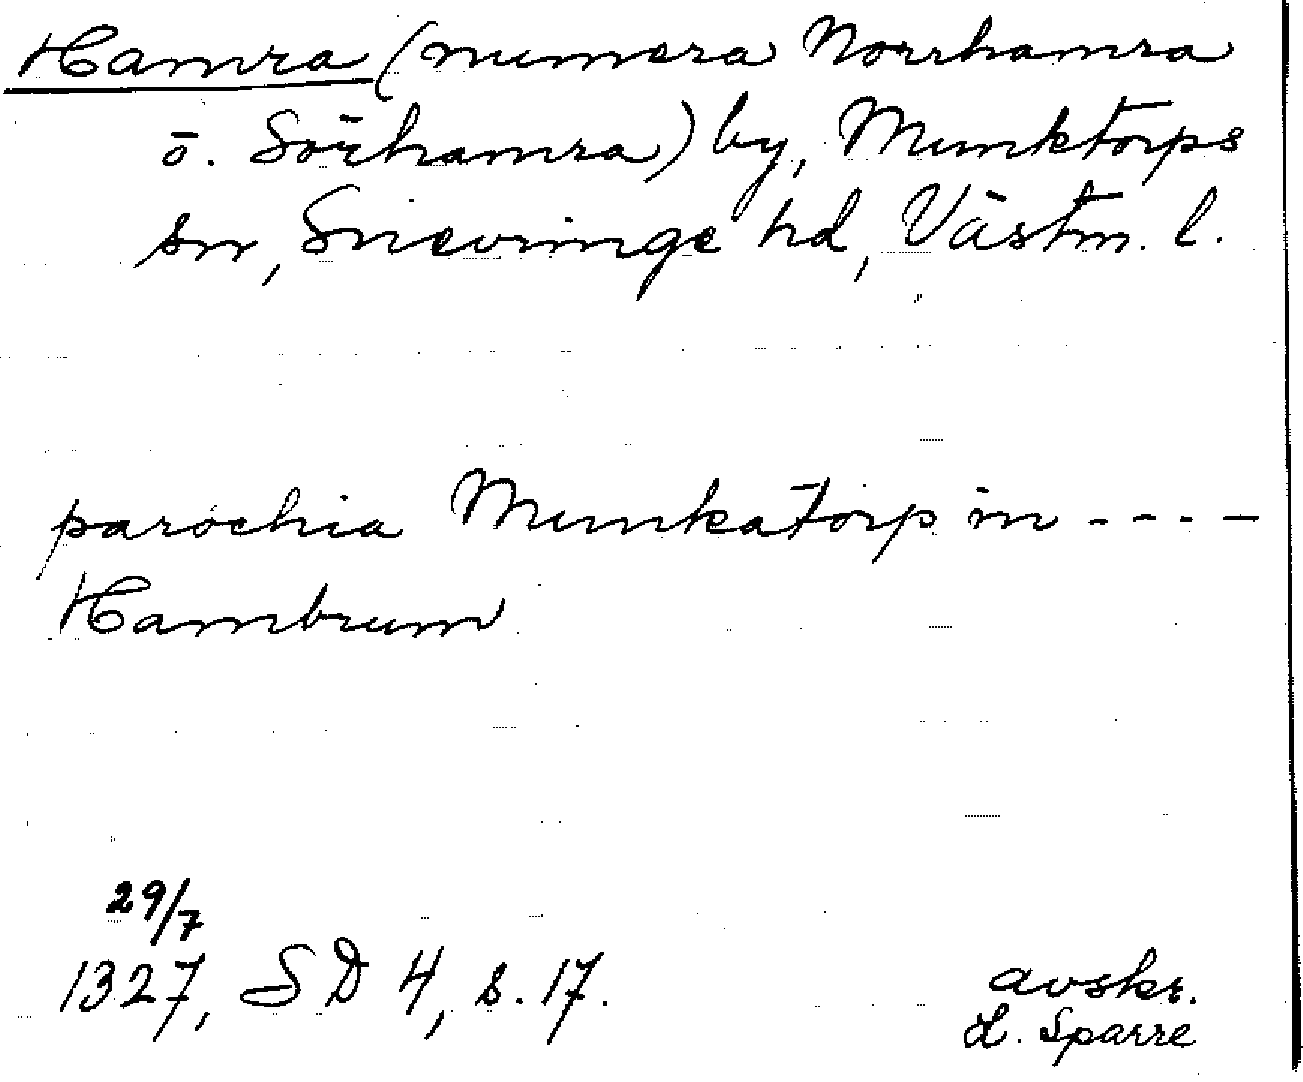 Hamra (numera Norrhamra
ō. Sörhamra) by, Munktorps
sn, Snevringe hd, Västm. l.
parochia Munkatorp in - - - -
Hambrum
29/7
1327, SD 4, s. 17.
avskr.
L. Sparre